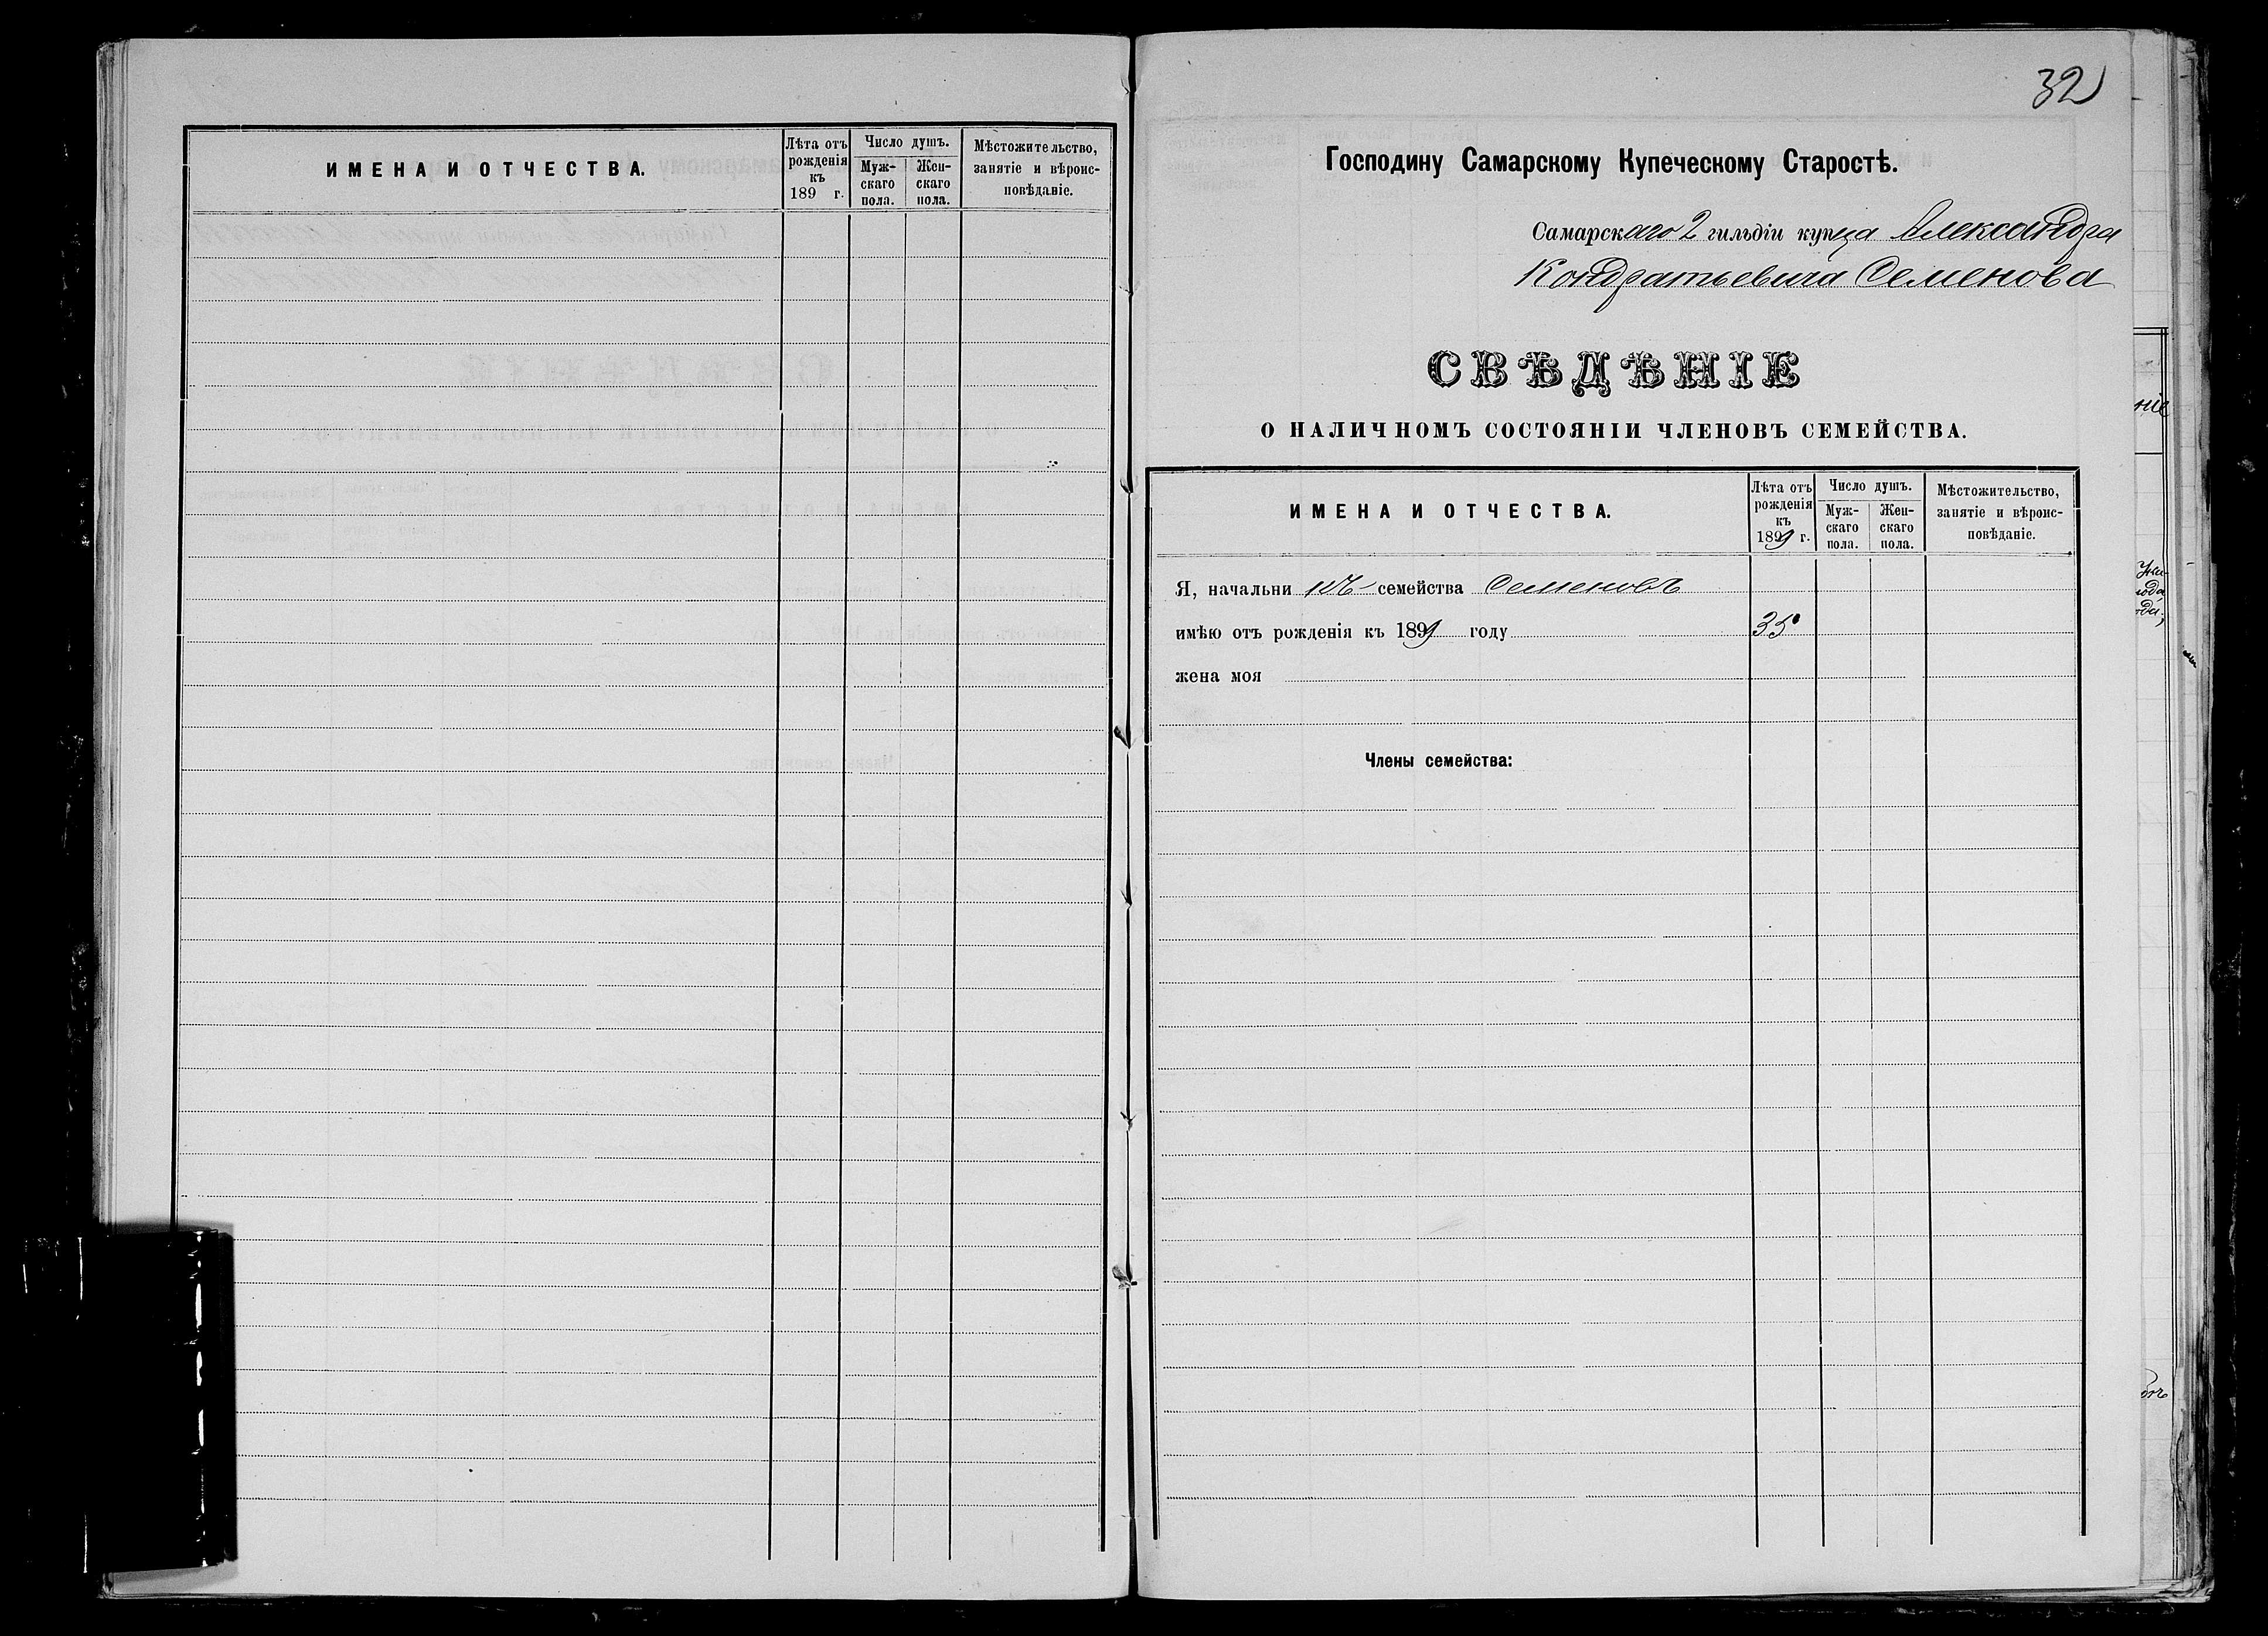 ИМЕНА И ОТЧЕСТВА.
Лѣта отъ рожденія къ 189 г.
Число душъ.
Муж-скаго пола.
Жен-скаго пола.
Мѣстожительство, занятіе и вѣроис-повѣданіе.
32
Господину Самарскому Купеческому Старостѣ.
Самарскаго 2 гильдіи купца Александра
Кондратьевича Семенова
СВѢДѢНІЕ
О НАЛИЧНОМЪ СОСТОЯНІИ ЧЛЕНОВЪ СЕМЕЙСТВА.
ИМЕНА И ОТЧЕСТВА.
Лѣта отъ рожденія къ 1899 г.
Число душъ.
Муж-скаго пола.
Жен-скаго пола.
Мѣстожительство, занятіе и вѣроис-повѣданіе.
Я, начальникъ семейства Семеновъ
имѣю отъ рожденія къ 1899 году 35
жена моя
Члены семейства: